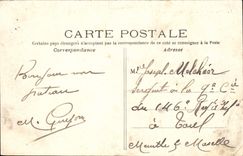 CARTE POSTALE
Certains pays étrangers n'acceptent pas la correspondance de ce côté se renseigner à la Poste
Correspondance
Adresse
Bonjour mon
M. Joseph Melchior
Sergent à la 9e Cie
du 146e Reg
M. Guyon
à Toul
Meurthe & Moselle